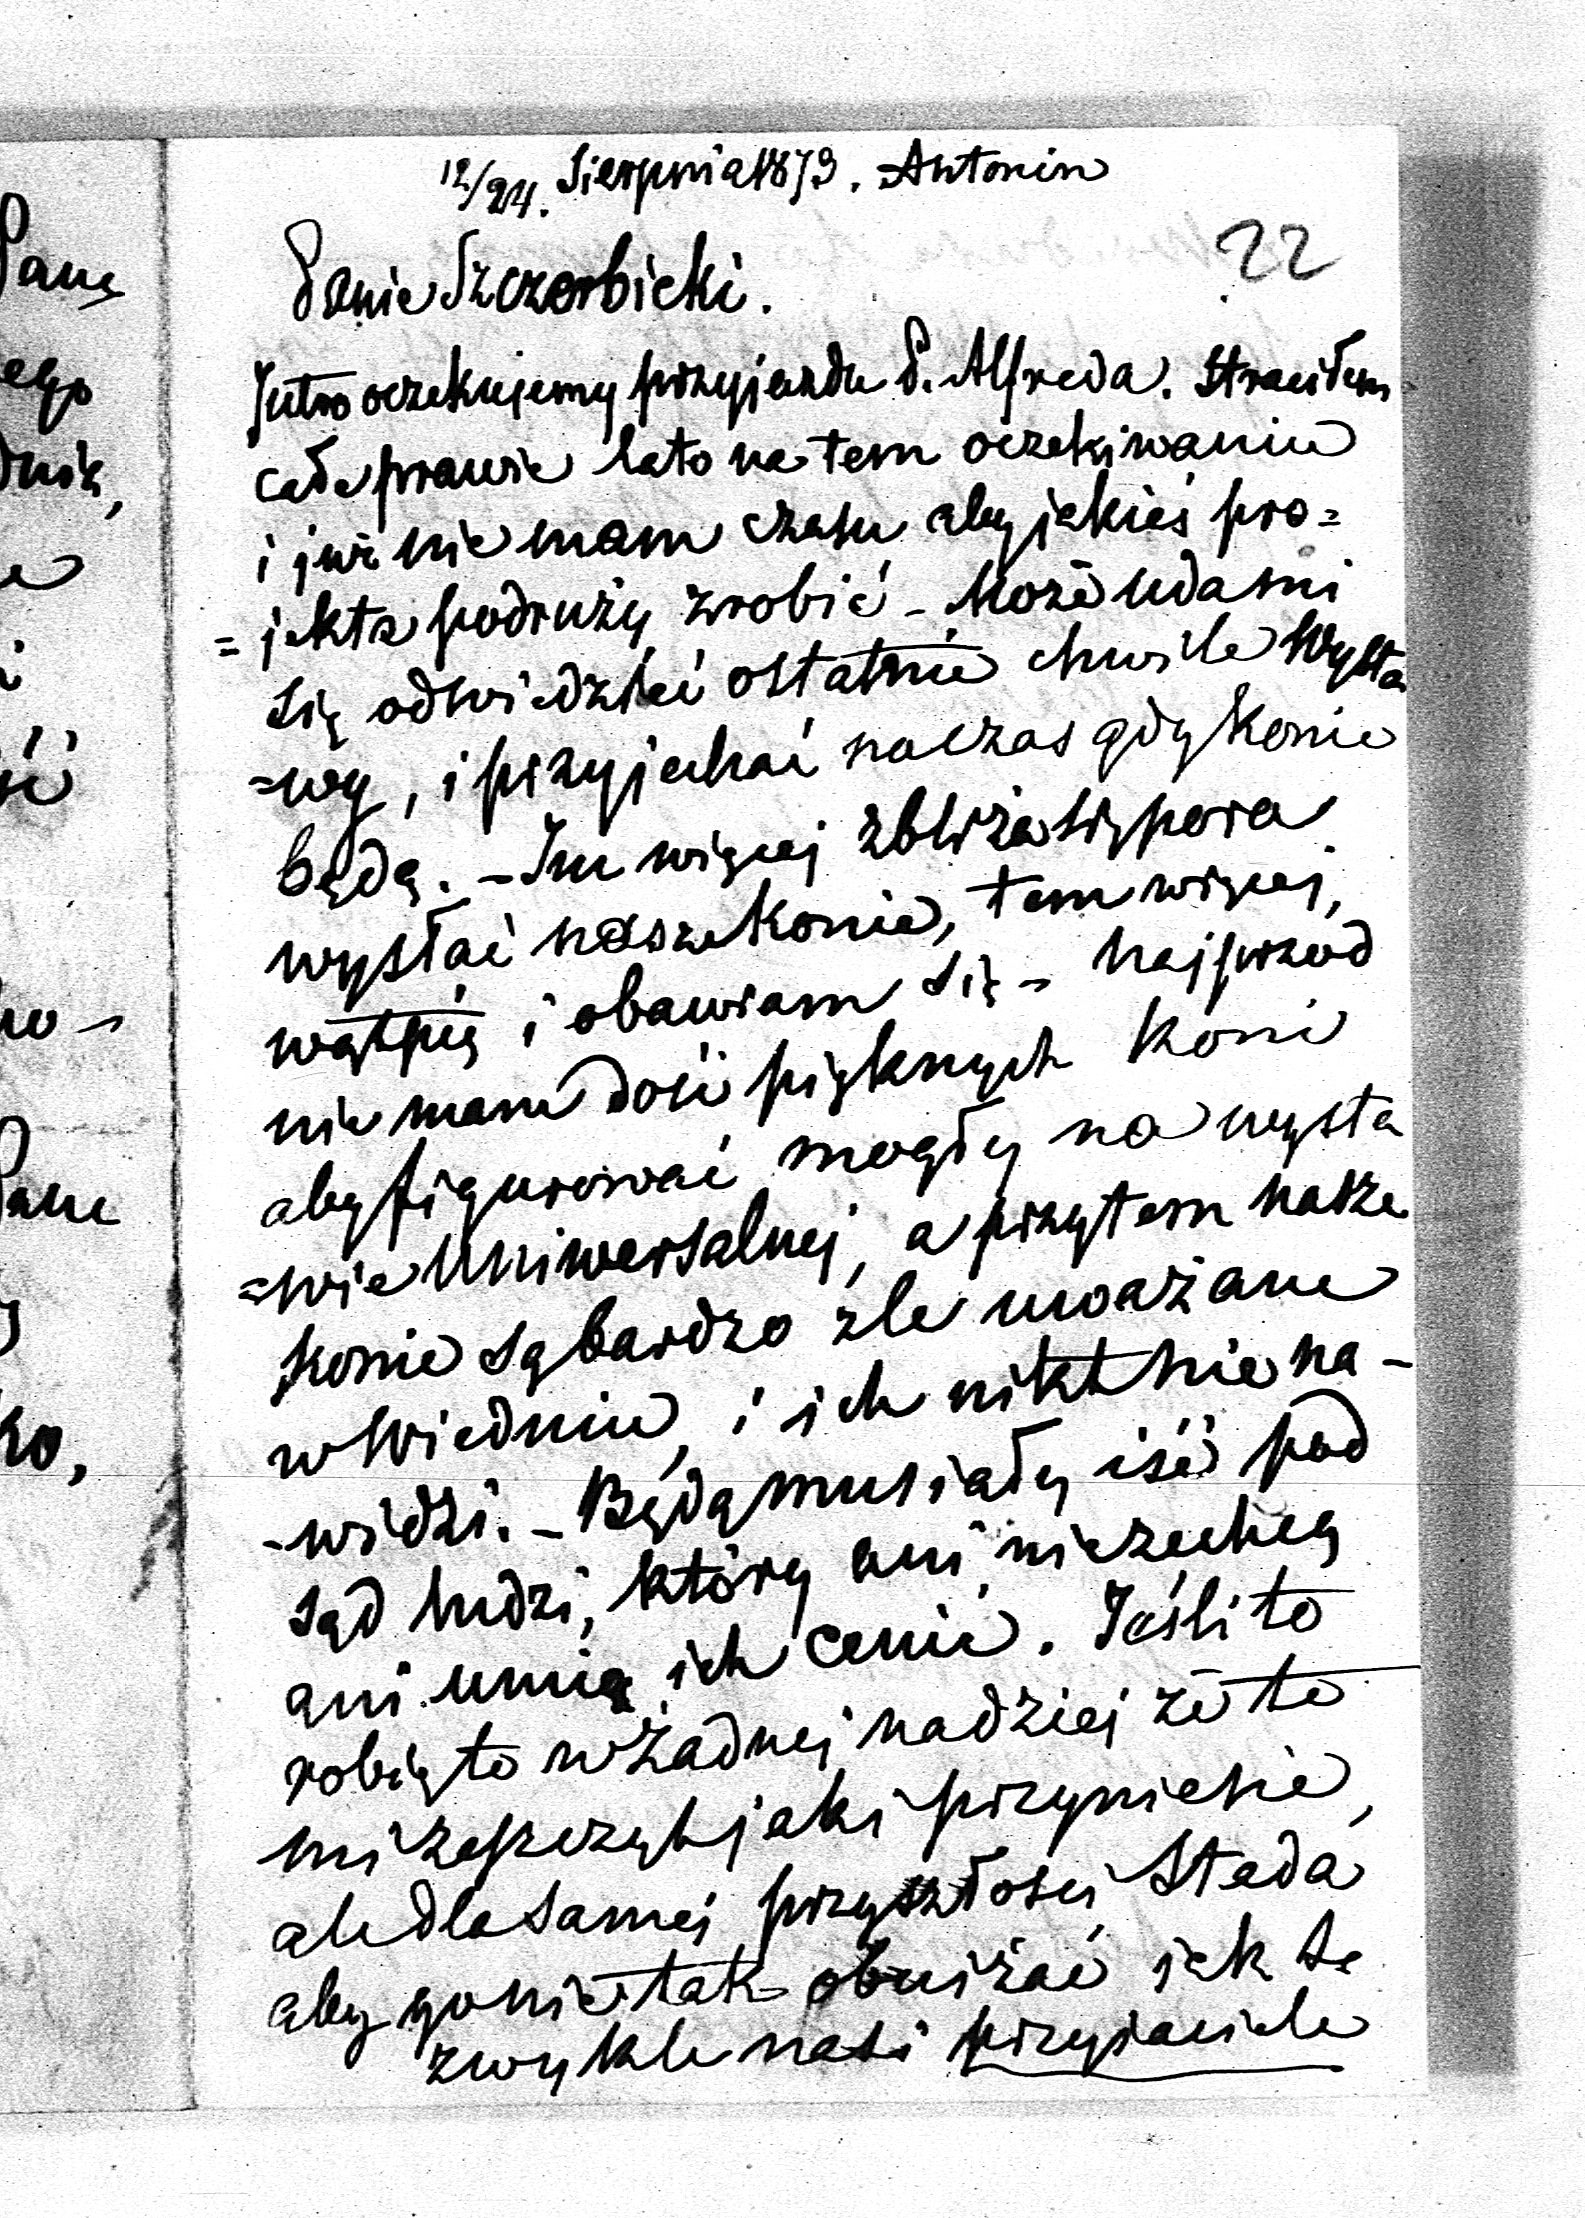 12/24. Sierpnia 1873. Antonin
22
Panie Szczerbicki.
Jutro oczekujemy przyjazdu P. Alfreda. Straciłem
całe prawie lato na tem oczekiwaniu
i już nie mam czasu aby jakieś pro=
=jekta podruży zrobić - Może uda mi
się odwiedzieć ostatnie chwile Wysta
=wy, i przyjechać na czas gdy konie
będą. - Im więcej zbliża się pora
wysłać nasze konie, tem więcej,
wątpię i obawiam się - najprzod
nie mam dość pięknych koni
aby figurować mogły na wysta
=wie Uniwersalnej, a przytem nasze
konie są bardzo źle uważane
w Wiedniu, i ich nikt nie na-
-widzi. - Będą musiały iść pod
sąd ludzi, którzy ani nie zechcą
ani umią ich cenić. Jeśli to
robię to w żadnej nadziej że to
mi zaszczyt jaki przyniesie,
ale dla samej przyszłości Stada
aby go nie tak obniżać jak te
zwykle nasi przyjaciele
Pana
ego
dnik,
ść
no -
Pana
ko,